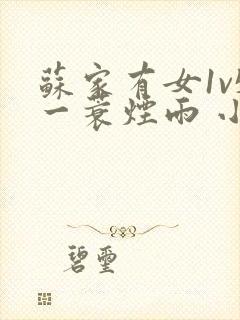 蘇家有女1v
一蓑煙雨 小
碧璽